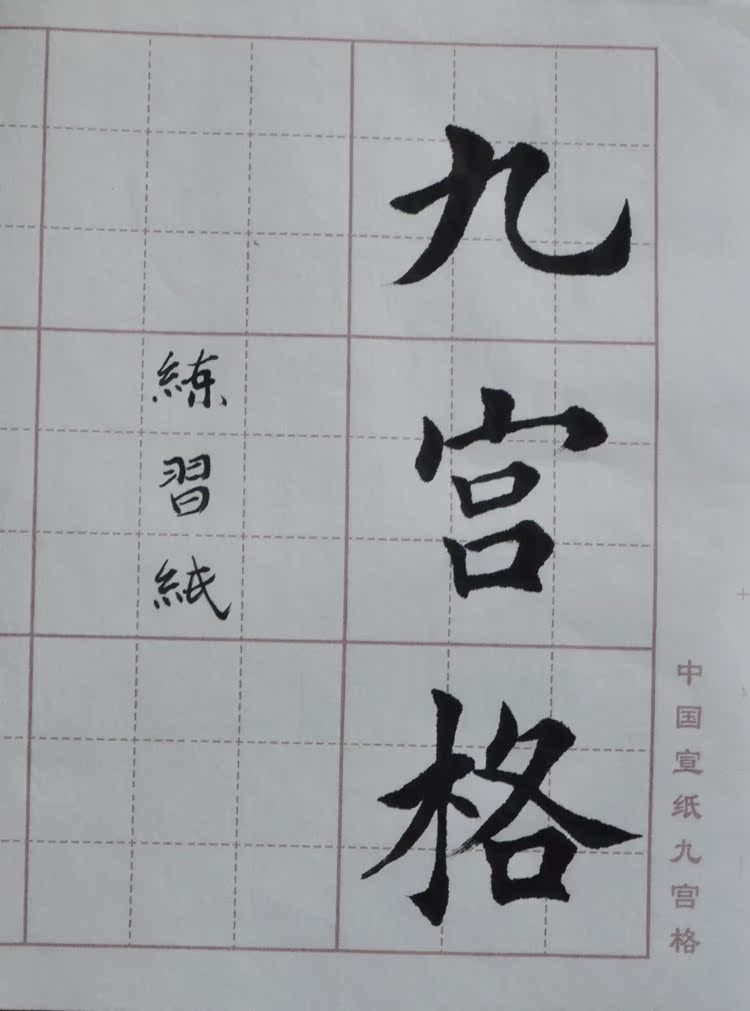 九宮格
練習紙
中国宣纸九宫格